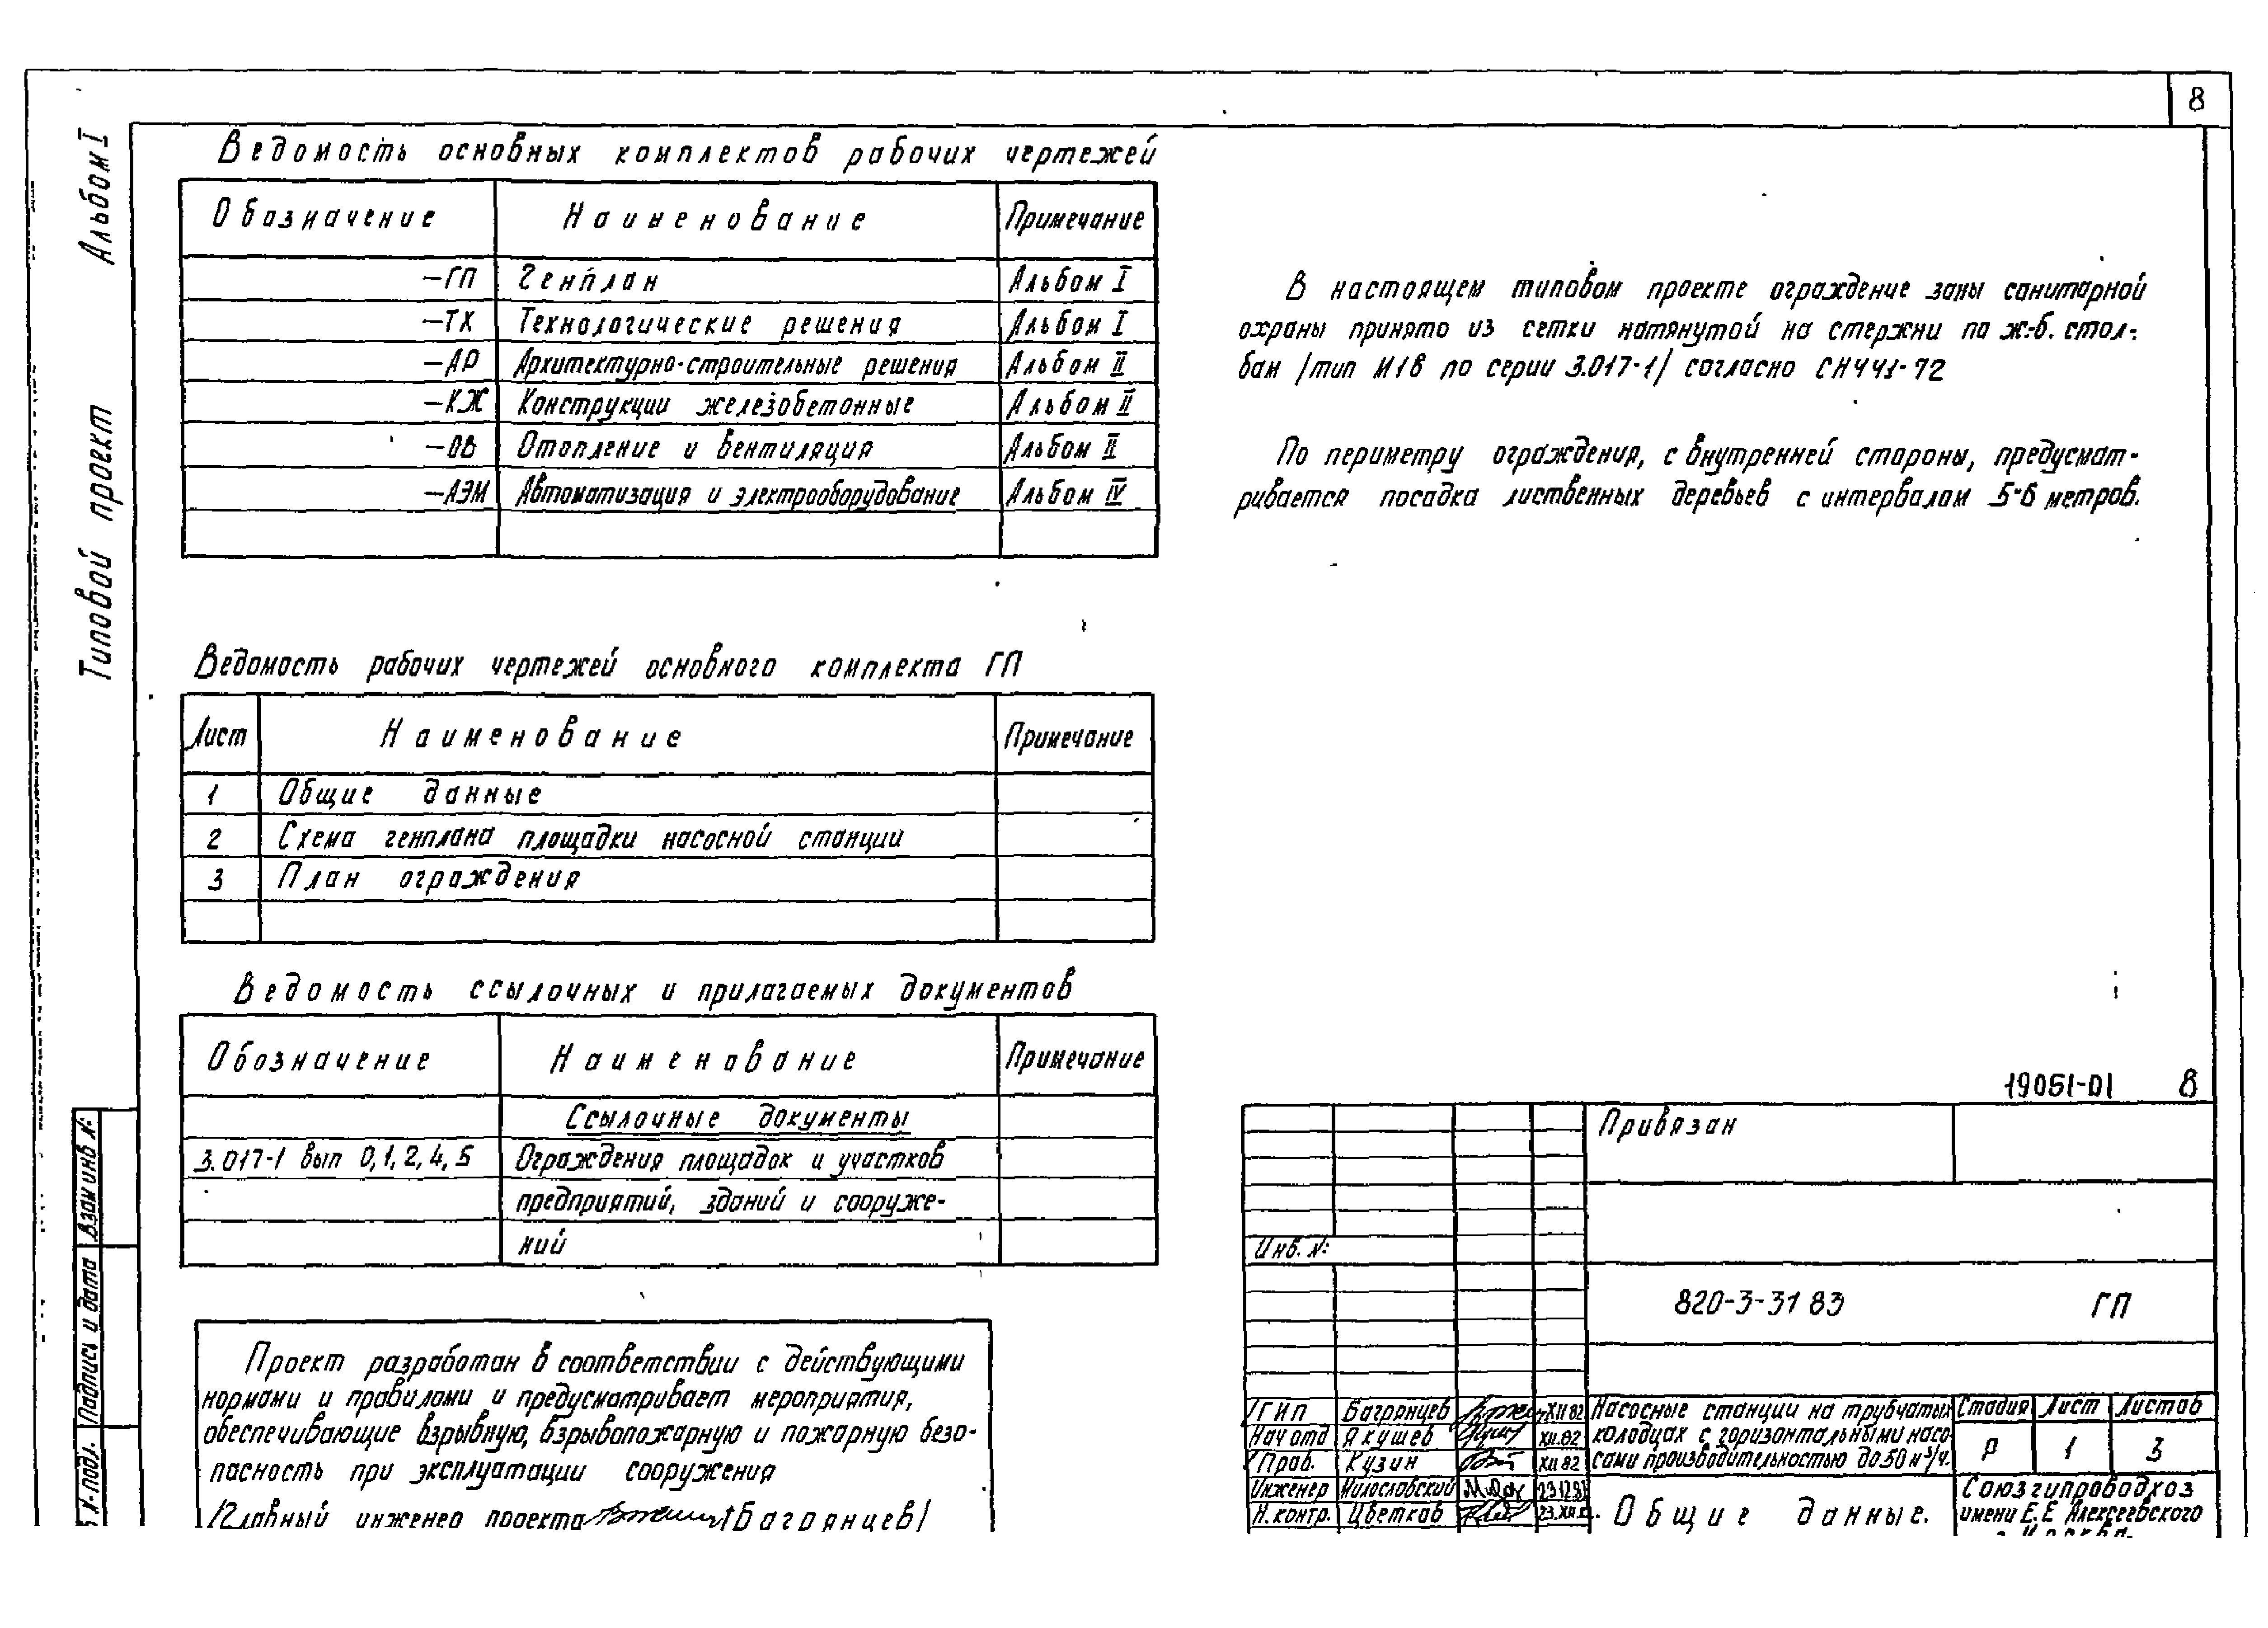 8
Альбом I
Типовой проект
Ведомость основных комплектов рабочих чертежей
Обозначение Наименование Примечание
-ГП Генплан Альбом I
-ТХ Технологические решения Альбом I
-АР Архитектурно-строительные решения Альбом II
-КЖ Конструкции железобетонные Альбом II
-ОВ Отопление и вентиляция Альбом II
-АЭМ Автоматизация и электрооборудование Альбом IV
Ведомость рабочих чертежей основного комплекта ГП
Лист Наименование Примечание
1 Общие данные
2 Схема генплана площадки насосной станции
3 План ограждения
Ведомость ссылочных и прилагаемых документов
Обозначение Наименование Примечание
Ссылочные документы
3.017-1 вып 0,1,2,4,5 Ограждения площадок и участков
предприятий, зданий и сооруже-
ний
Проект разработан в соответствии с действующими
нормами и правилами и предусматривает мероприятия,
обеспечивающие взрывную, взрывопожарную и пожарную безо-
пасность при эксплуатации сооружения
Главный инженер проекта /Багрянцев/
В настоящем типовом проекте ограждение зоны санитарной
охраны принято из сетки натянутой на стержни по ж-б. стол-
бам /тип И1В по серии 3.017-1/ согласно СН441-72
По периметру ограждения, с внутренней стороны, предусмат-
ривается посадка лиственных деревьев с интервалом 5-6 метров.
19051-01 8
Привязан
Инв. №:
820-3-31 83 ГП
ГИП Багрянцев XII 82
Нач отд Якушев XII.82
Пров. Кузин XII 82
Инженер Милославский 23.12.82
Н.контр. Цветков 23.XII.
Насосные станции на трубчатых
колодцах с горизонтальными насо-
сами производительностью до 50 м³/ч.
Стадия Лист Листов
Р 1 3
Общие данные.
Союзгипроводхоз
имени Е.Е Алексеевского
г. Москва.
Взам инв №:
Подпись и дата
№ подл.